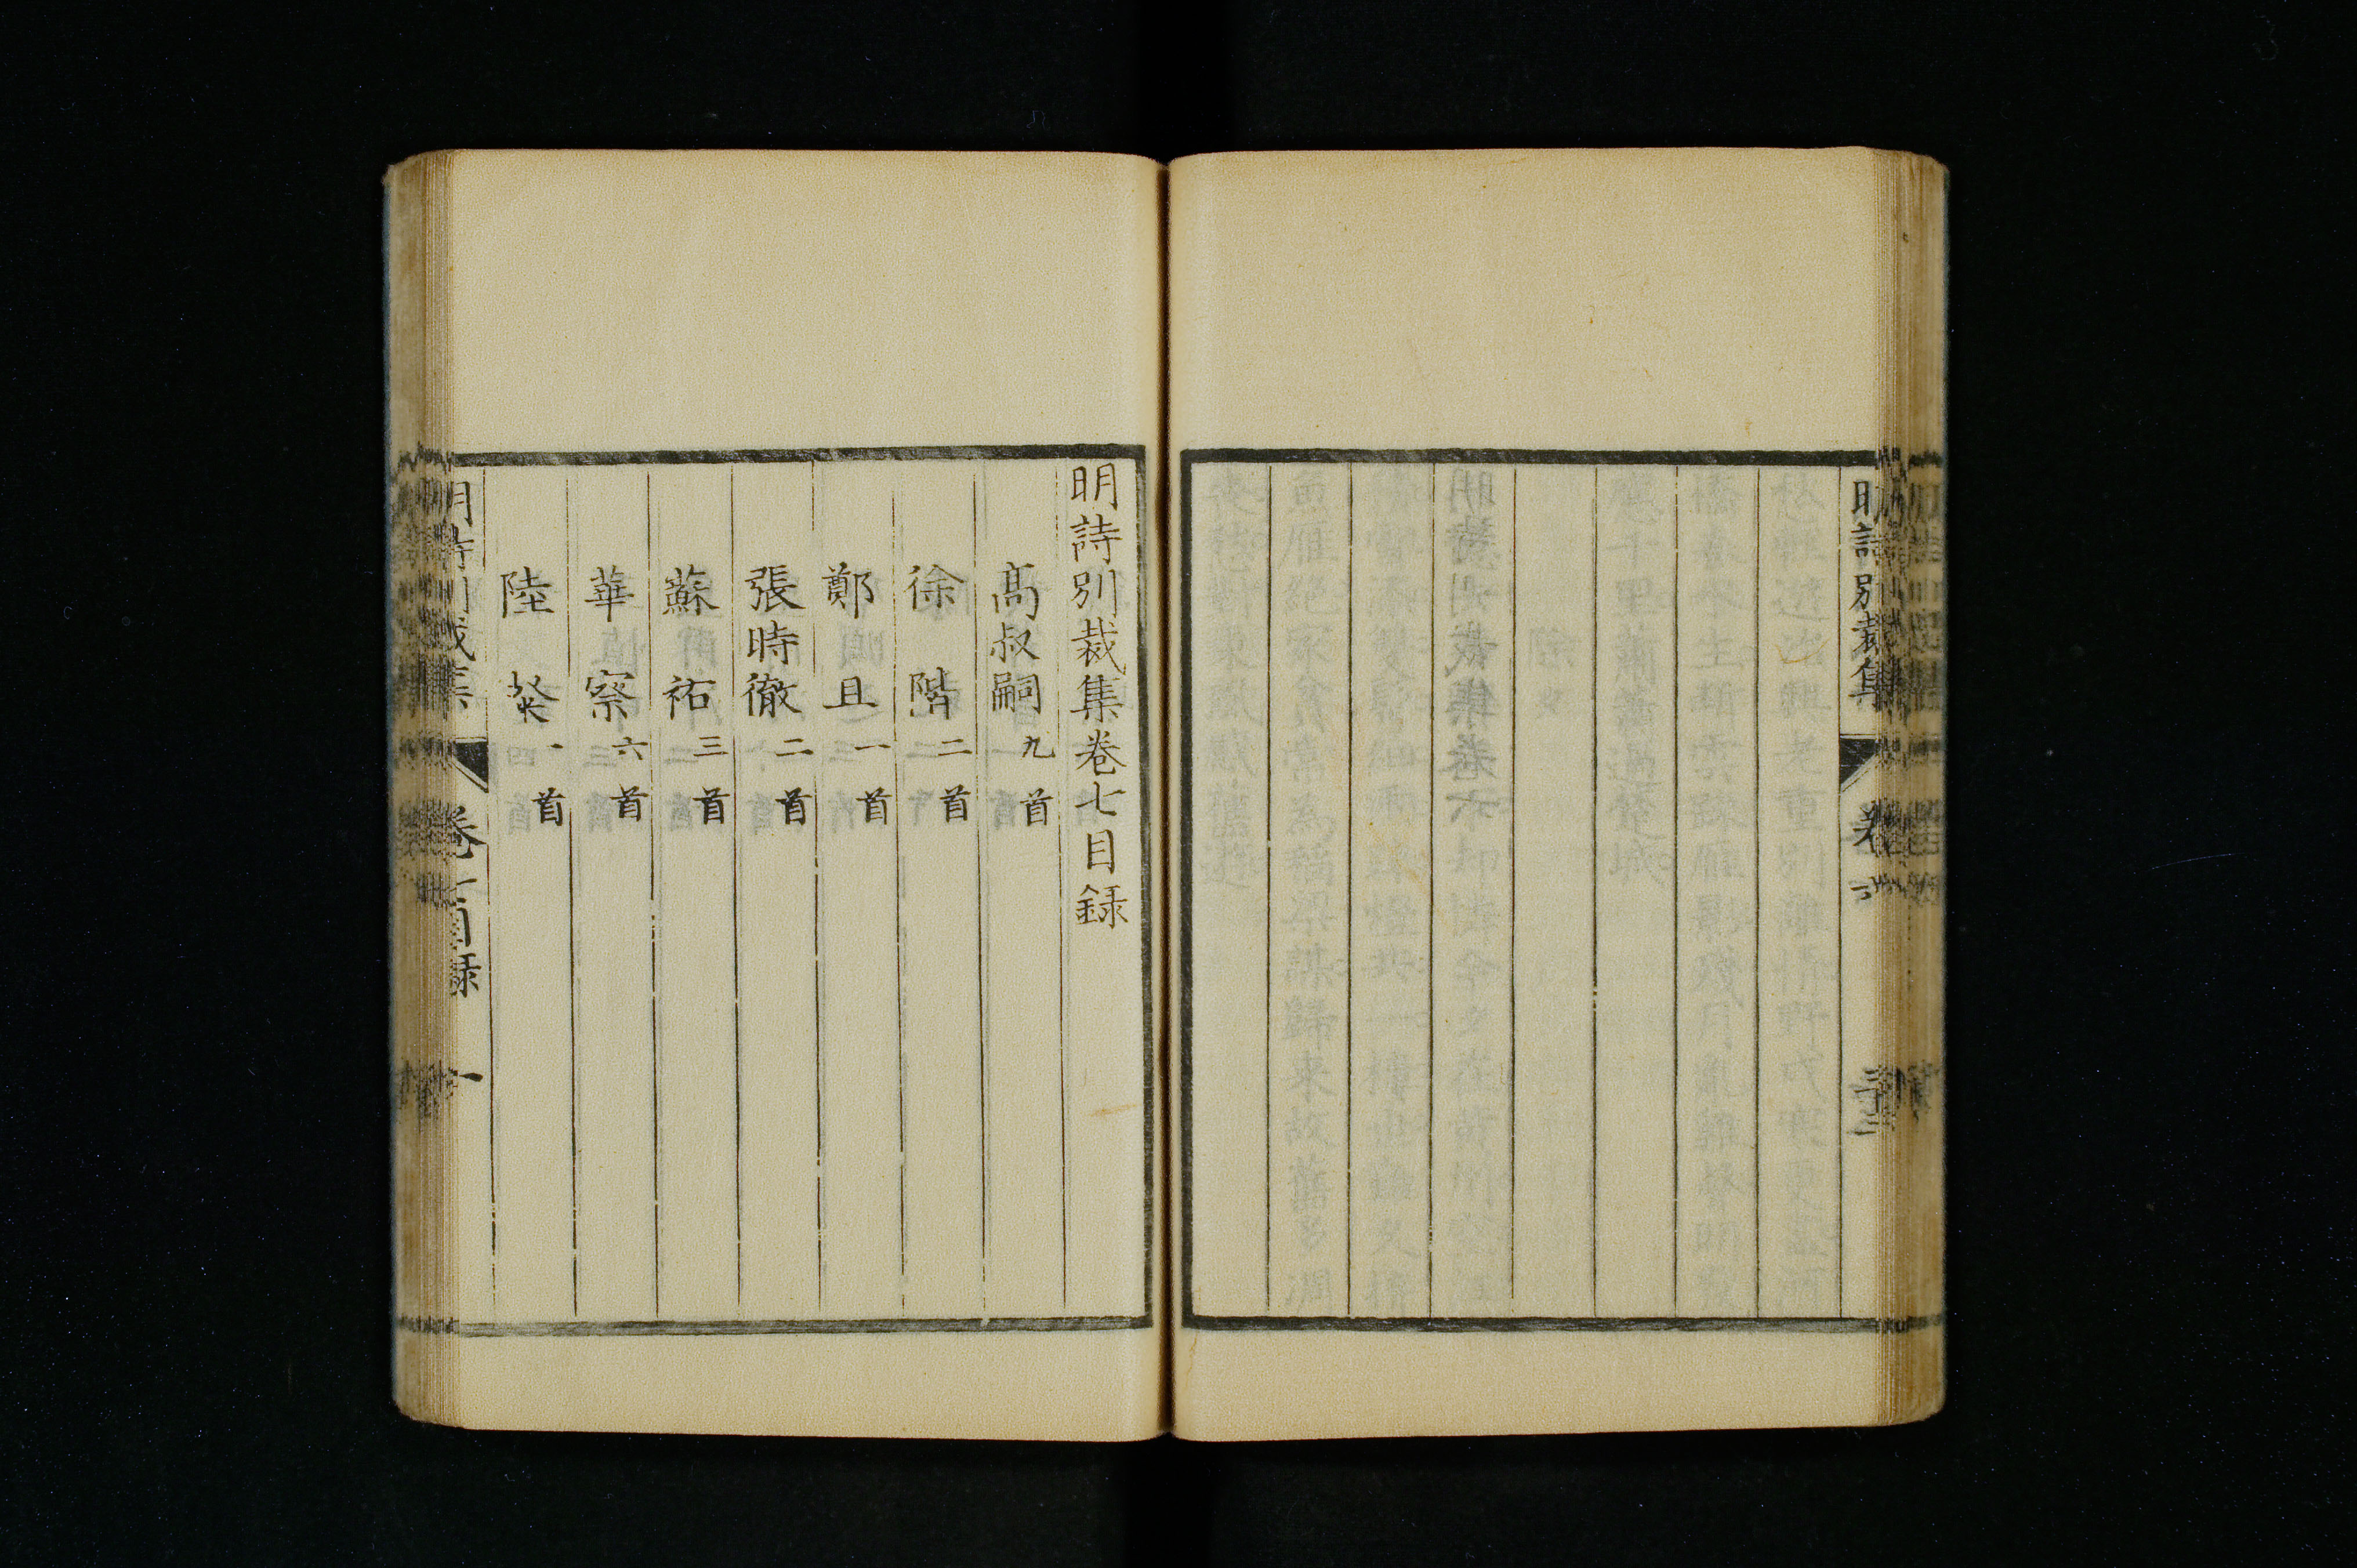 明詩別裁集
明詩別裁集卷七目録
高叔嗣 九首
徐階 二首
鄭旦 一首
張時徹 二首
蘇祐 三首
華察 六首
陸粲 一首
明詩別裁集 卷七目録 一